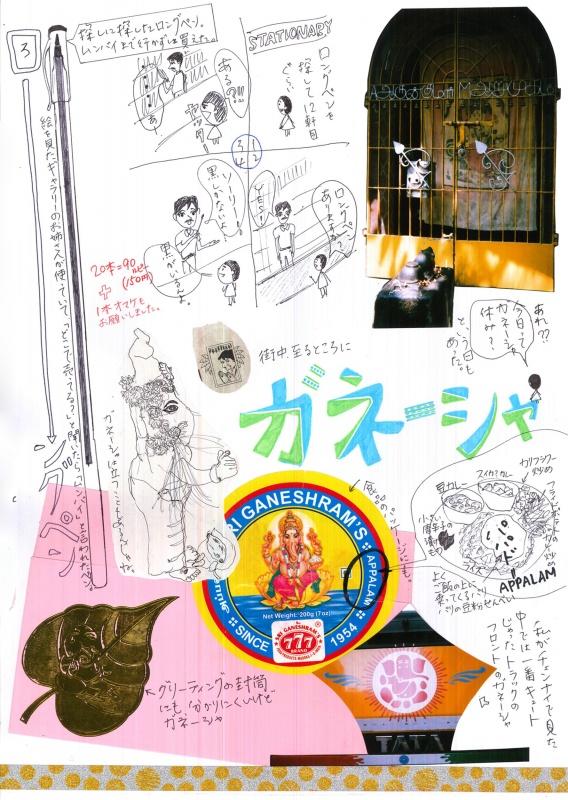 3
探しに探したロングペン。
ムンバイまで行かずに買えた。
絵を見たギャラリーのお姉さんが使っていて、「どこで売ってる?」と聞いたら「ムンバイ」と言われたペン。
ロングペン
STATIONARY
ロングペンを
探して12軒目
ぐらい
ロングペン
ありますか?
YES!
ある?!!!
あ!
ソーリー!
黒しかないよ!
黒がいるよ。
3 1
4 2
20本=90ルピー
(150円)
1本オマケも
お願いしました。
あれ??
今日って
ガネーシャ
休み?
という日も
あった。
街中至るところに
ガネーシャ
ガネーシャは立つこともあるんじゃね。
SRI GANESHRAM'S
APPALAM
Net Weight: 200g (7oz)
SRI GANESHRAM'S
777
BRAND
SINCE 1954
豆カレー
スイカカレー
カリフラワー
炒め
ライス
APPALAM
よく
ご飯の上に
乗ってくるパリ
パリの豆粉せんべい
私がチェンナイで見た
中では一番キュート
じゃったトラックの
フロントのガネーシャ
TATA
グリーティングの封筒
にも、分かりにくいけど
ガネーシャ